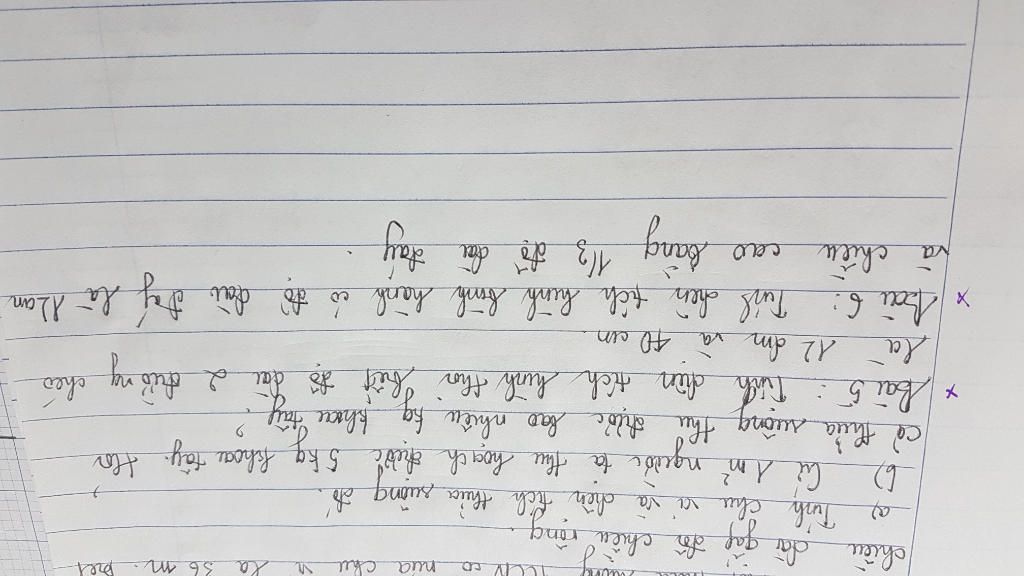 ruộng HCN có nửa chu vi là 36 m. Biết
chiều dài gấp đôi chiều rộng.
a) Tính chu vi và diện tích thửa ruộng đó.
b) Cứ 1m² người ta thu hoạch được 5 kg khoai tây. Hỏi
cả thửa ruộng thu được bao nhiêu kg khoai tây?
x Bài 5: Tính diện tích hình thoi biết độ dài 2 đường chéo
là 12 dm và 40 cm.
x Bài 6: Tính diện tích hình bình hành có độ dài đáy là 12cm
và chiều cao bằng 1/3 độ dài đáy.